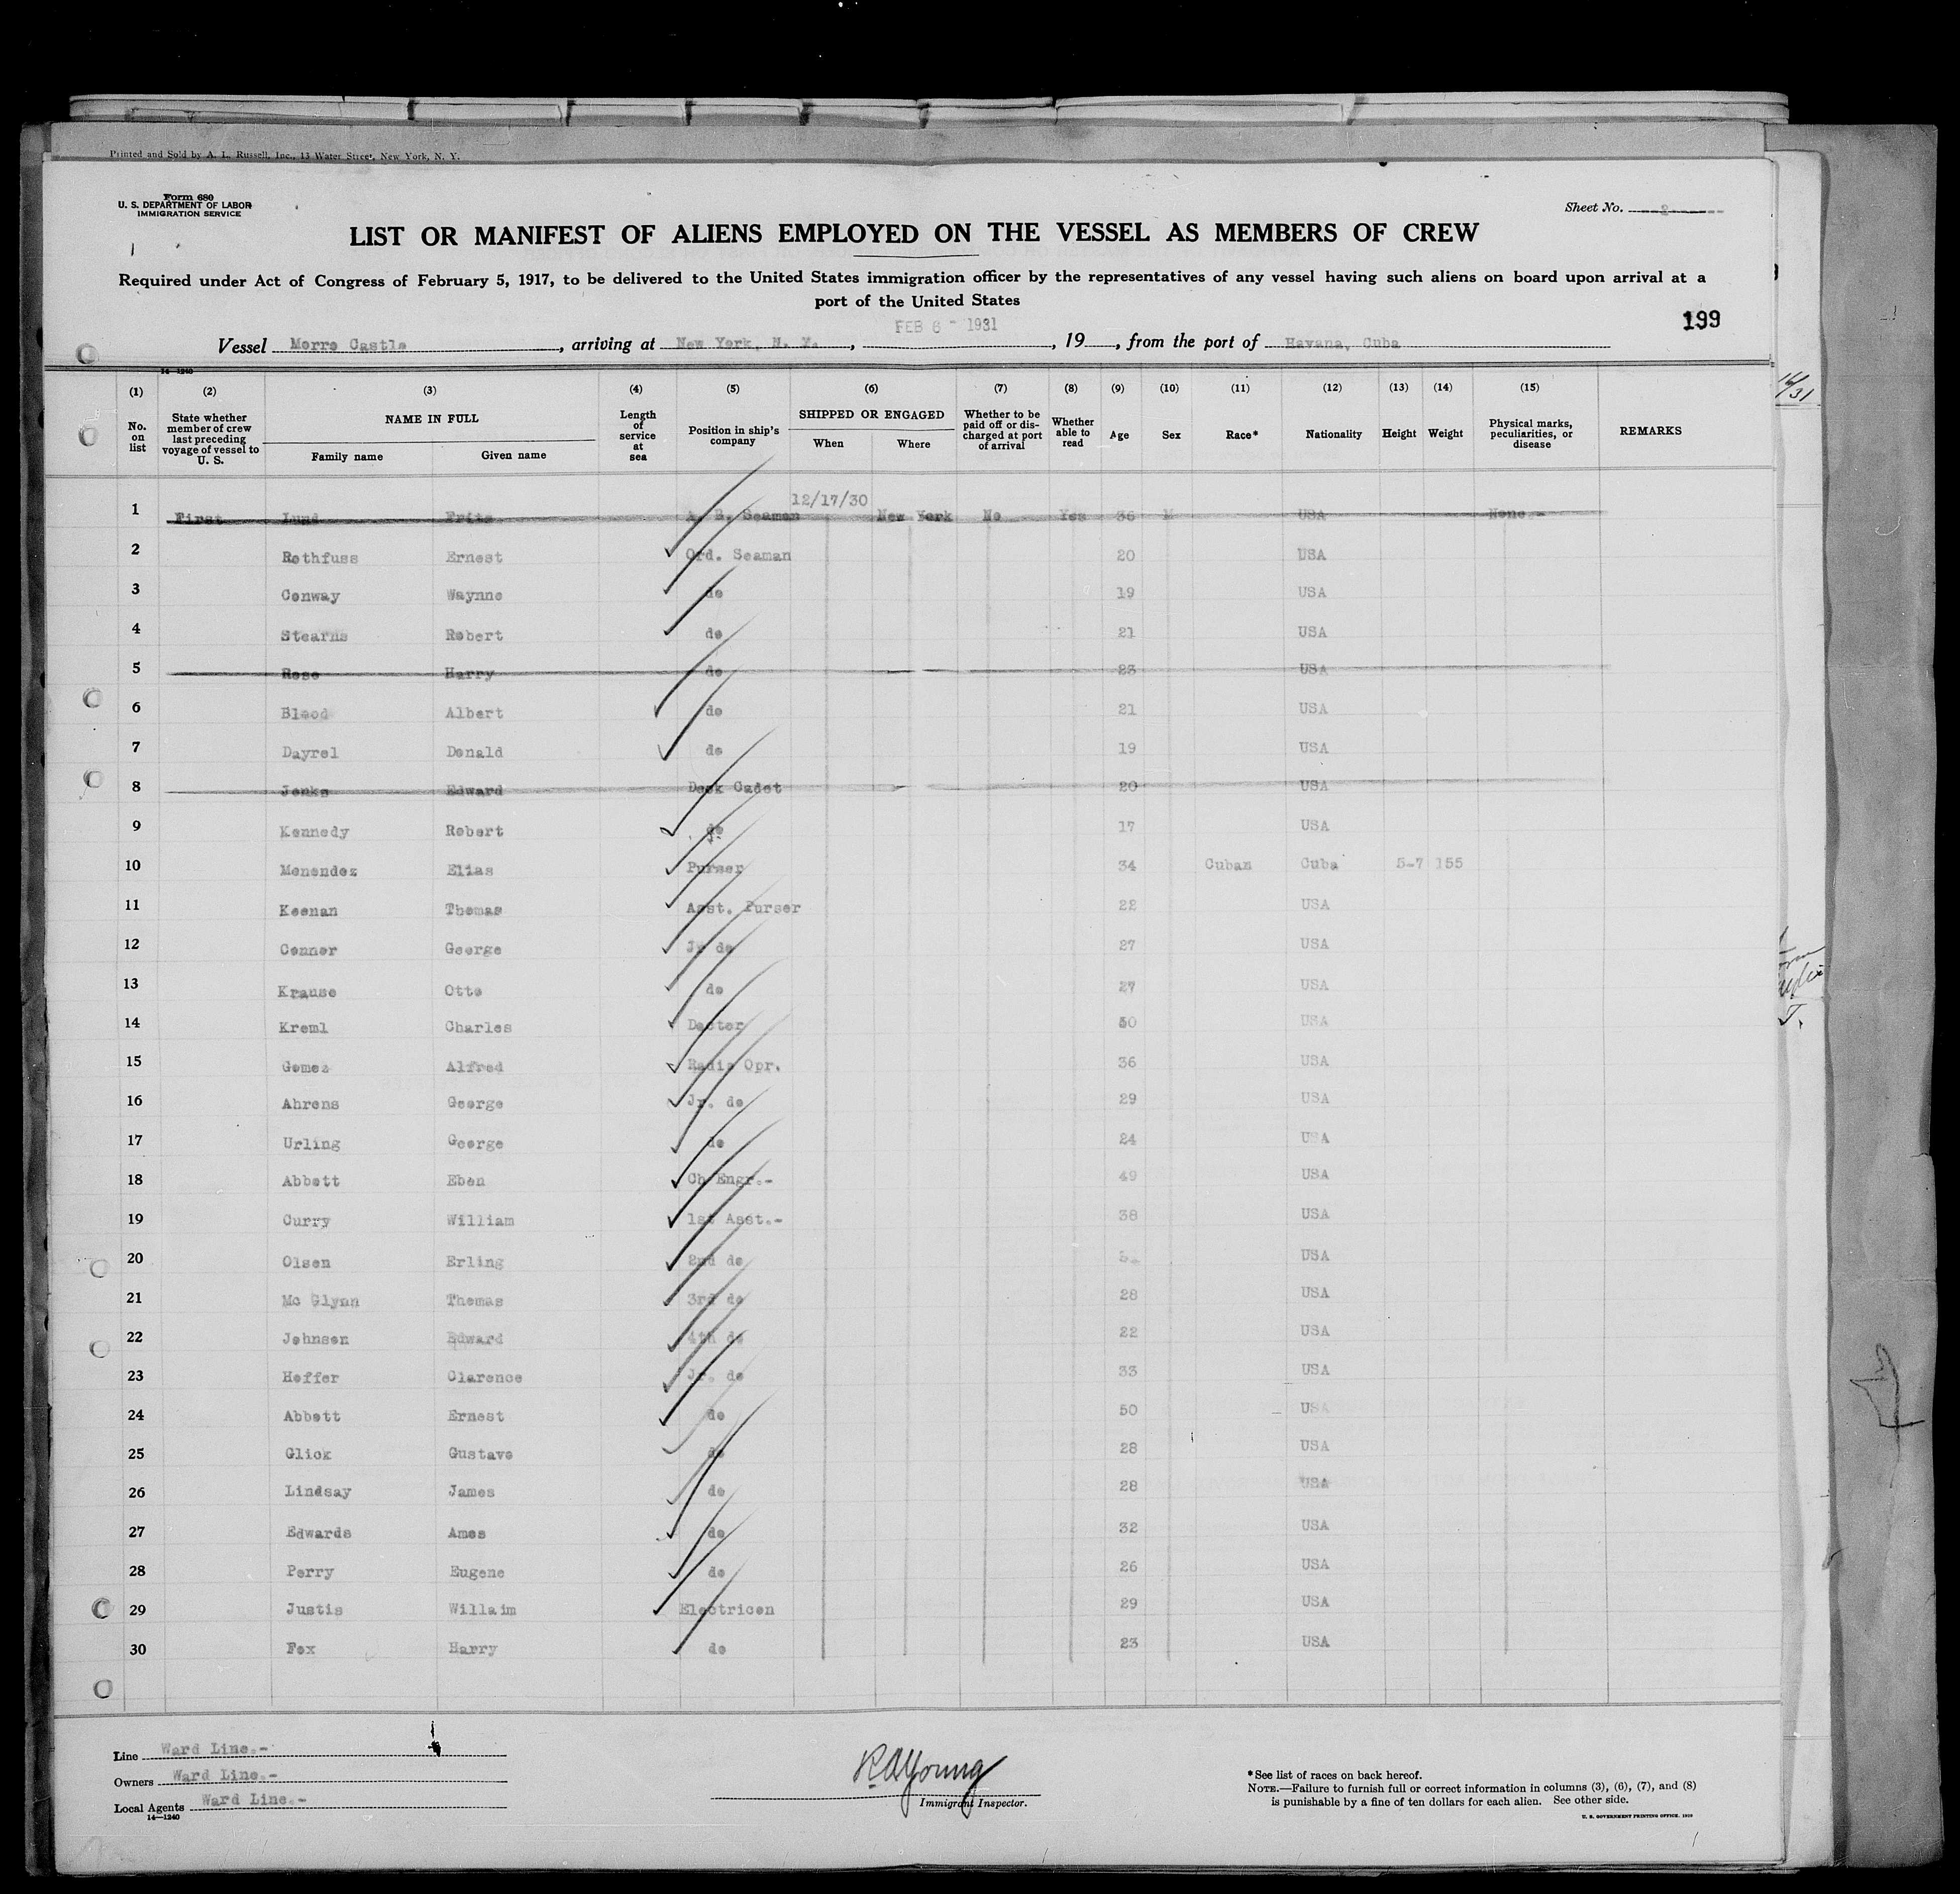 Printed and Sold by A. L. Russell, Inc., 13 Water Street, New York, N. Y.
Form 680
U. S. DEPARTMENT OF LABOR
IMMIGRATION SERVICE
Sheet No. 2
LIST OR MANIFEST OF ALIENS EMPLOYED ON THE VESSEL AS MEMBERS OF CREW
Required under Act of Congress of February 5, 1917, to be delivered to the United States immigration officer by the representatives of any vessel having such aliens on board upon arrival at a
port of the United States
199
FEB 6 - 1931
Vessel Morro Castle, arriving at New York, N. Y., , 19 , from the port of Havana, Cuba
14—1240
(1) (2) (3) (4) (5) (6) (7) (8) (9) (10) (11) (12) (13) (14) (15)
No. on list
State whether member of crew last preceding voyage of vessel to U. S.
NAME IN FULL
Family name Given name
Length of service at sea
Position in ship's company
SHIPPED OR ENGAGED
When Where
Whether to be paid off or discharged at port of arrival
Whether able to read
Age Sex Race* Nationality Height Weight
Physical marks, peculiarities, or disease
REMARKS
12/17/30
1 First Lund Frits A. B. Seaman New York No Yes 36 M USA None.-
2 Rothfuss Ernest Ord. Seaman 20 USA
3 Conway Waynne do 19 USA
4 Stearns Robert do 21 USA
5 Rose Harry do 23 USA
6 Blood Albert do 21 USA
7 Dayrel Donald do 19 USA
8 Jenks Edward Deck Cadet 20 USA
9 Kennedy Robert do 17 USA
10 Menendez Elias Purser 34 Cuban Cuba 5-7 155
11 Keenan Thomas Asst. Purser 22 USA
12 Conner George Jr do 27 USA
13 Krause Otto do 27 USA
14 Kreml Charles Doctor 50 USA
15 Gomez Alfred Radio Opr. 36 USA
16 Ahrens George Jr. do 29 USA
17 Urling George do 24 USA
18 Abbott Eben Ch Engr.- 49 USA
19 Curry William 1st Asst.- 38 USA
20 Olsen Erling 2nd do USA
21 Mc Glynn Thomas 3rd do 28 USA
22 Johnson Edward 4th do 22 USA
23 Hoffer Clarence Jr. do 33 USA
24 Abbott Ernest do 50 USA
25 Glick Gustave do 28 USA
26 Lindsay James do 28 USA
27 Edwards Amos do 32 USA
28 Perry Eugene do 26 USA
29 Justis Willaim Electricen 29 USA
30 Fox Harry do 23 USA
Line Ward Line.-
Owners Ward Line.-
Local Agents Ward Line.-
14—1240
R. A. Young
Immigrant Inspector.
*See list of races on back hereof.
NOTE.—Failure to furnish full or correct information in columns (3), (6), (7), and (8)
is punishable by a fine of ten dollars for each alien. See other side.
U. S. GOVERNMENT PRINTING OFFICE: 1929